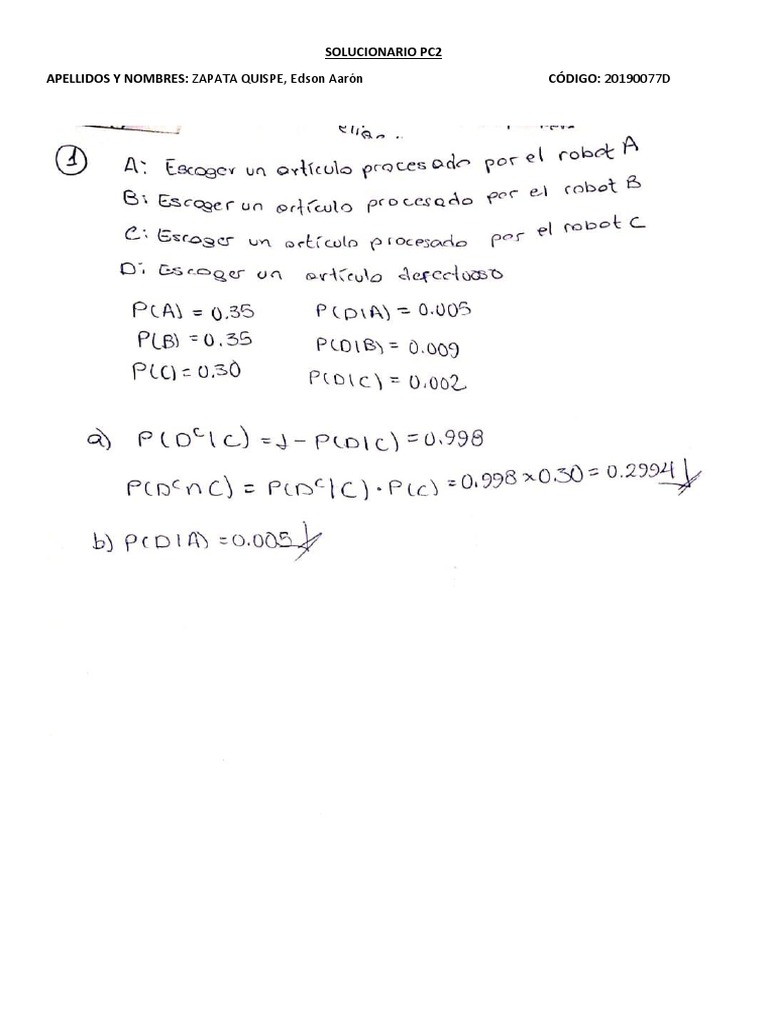 SOLUCIONARIO PC2
APELLIDOS Y NOMBRES: ZAPATA QUISPE, Edson Aarón CÓDIGO: 20190077D
1 A: Escoger un artículo procesado por el robot A
B: Escoger un artículo procesado por el robot B
C: Escoger un artículo procesado por el robot C
D: Escoger un artículo defectuoso
P(A) = 0.35 P(D|A) = 0.005
P(B) = 0.35 P(D|B) = 0.009
P(C) = 0.30 P(D|C) = 0.002
a) P(Dᶜ|C) = 1 - P(D|C) = 0.998
P(Dᶜ∩C) = P(Dᶜ|C) · P(C) = 0.998 × 0.30 = 0.2994
b) P(D|A) = 0.005